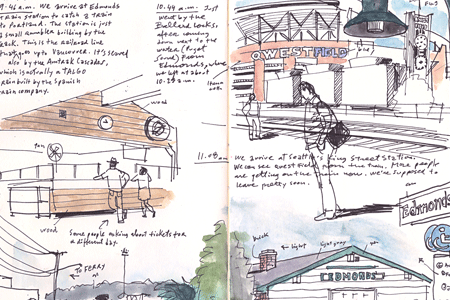 9:45 a.m. We arrive at Edmonds
train station to catch a train
to Portland. The station is just
a small rambler building by the
track. This is the railroad line
that goes to Vancouver. It's served
also by the Amtrak Cascades,
which is actually a TALGO
train built by the Spanish
train company.
10:44 a.m. Just
went by the
Ballard Locks,
after coming
down next to the
water (Puget
Sound) from
Edmonds, where
we left at about
10:20 a.m.
wood
fan
11:08 am
wood
some people asking about tickets for
a different day.
TO FERRY
QWESTFIELD
We arrive at Seattle's King Street Station.
We can see Qwest field from the train. More people
are getting on the train now. We're supposed to
leave pretty soon.
Edmonds
brick
light
light gray
EDMONDS